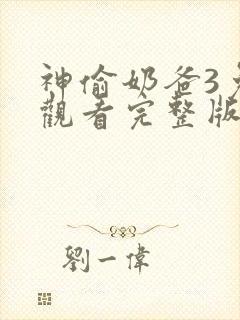 神偷奶爸3
觀看完整版
劉一偉